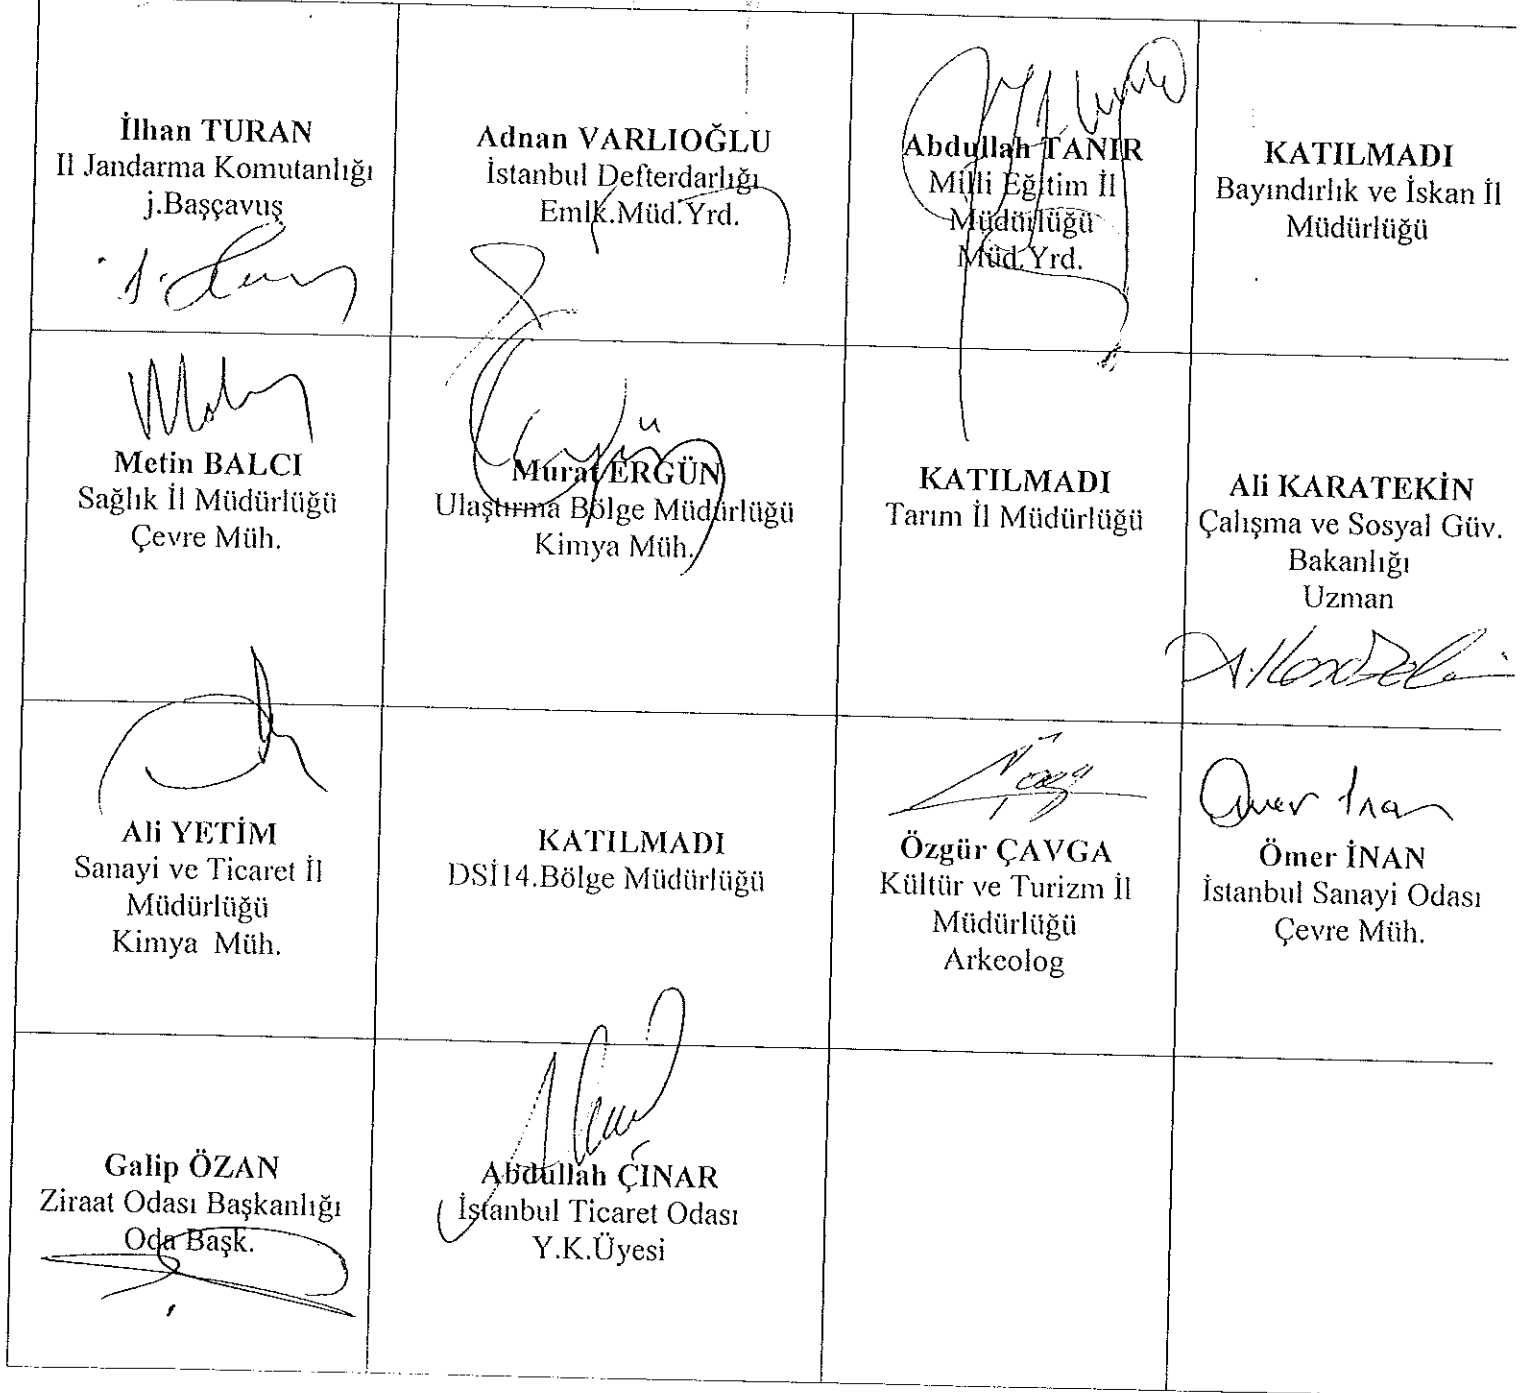 İlhan TURAN
Il Jandarma Komutanlığı
j.Başçavuş
Adnan VARLIOĞLU
İstanbul Defterdarlığı
Emlk.Müd.Yrd.
Abdullah TANIR
Milli Eğitim İl
Müdürlüğü
Müd.Yrd.
KATILMADI
Bayındırlık ve İskan İl
Müdürlüğü
Metin BALCI
Sağlık İl Müdürlüğü
Çevre Müh.
Murat ERGÜN
Ulaştırma Bölge Müdürlüğü
Kimya Müh.
KATILMADI
Tarım İl Müdürlüğü
Ali KARATEKİN
Çalışma ve Sosyal Güv.
Bakanlığı
Uzman
Ali YETİM
Sanayi ve Ticaret İl
Müdürlüğü
Kimya Müh.
KATILMADI
DSİ14.Bölge Müdürlüğü
Özgür ÇAVGA
Kültür ve Turizm İl
Müdürlüğü
Arkeolog
Ömer İnan
Ömer İNAN
İstanbul Sanayi Odası
Çevre Müh.
Galip ÖZAN
Ziraat Odası Başkanlığı
Oda Başk.
Abdullah ÇINAR
İstanbul Ticaret Odası
Y.K.Üyesi